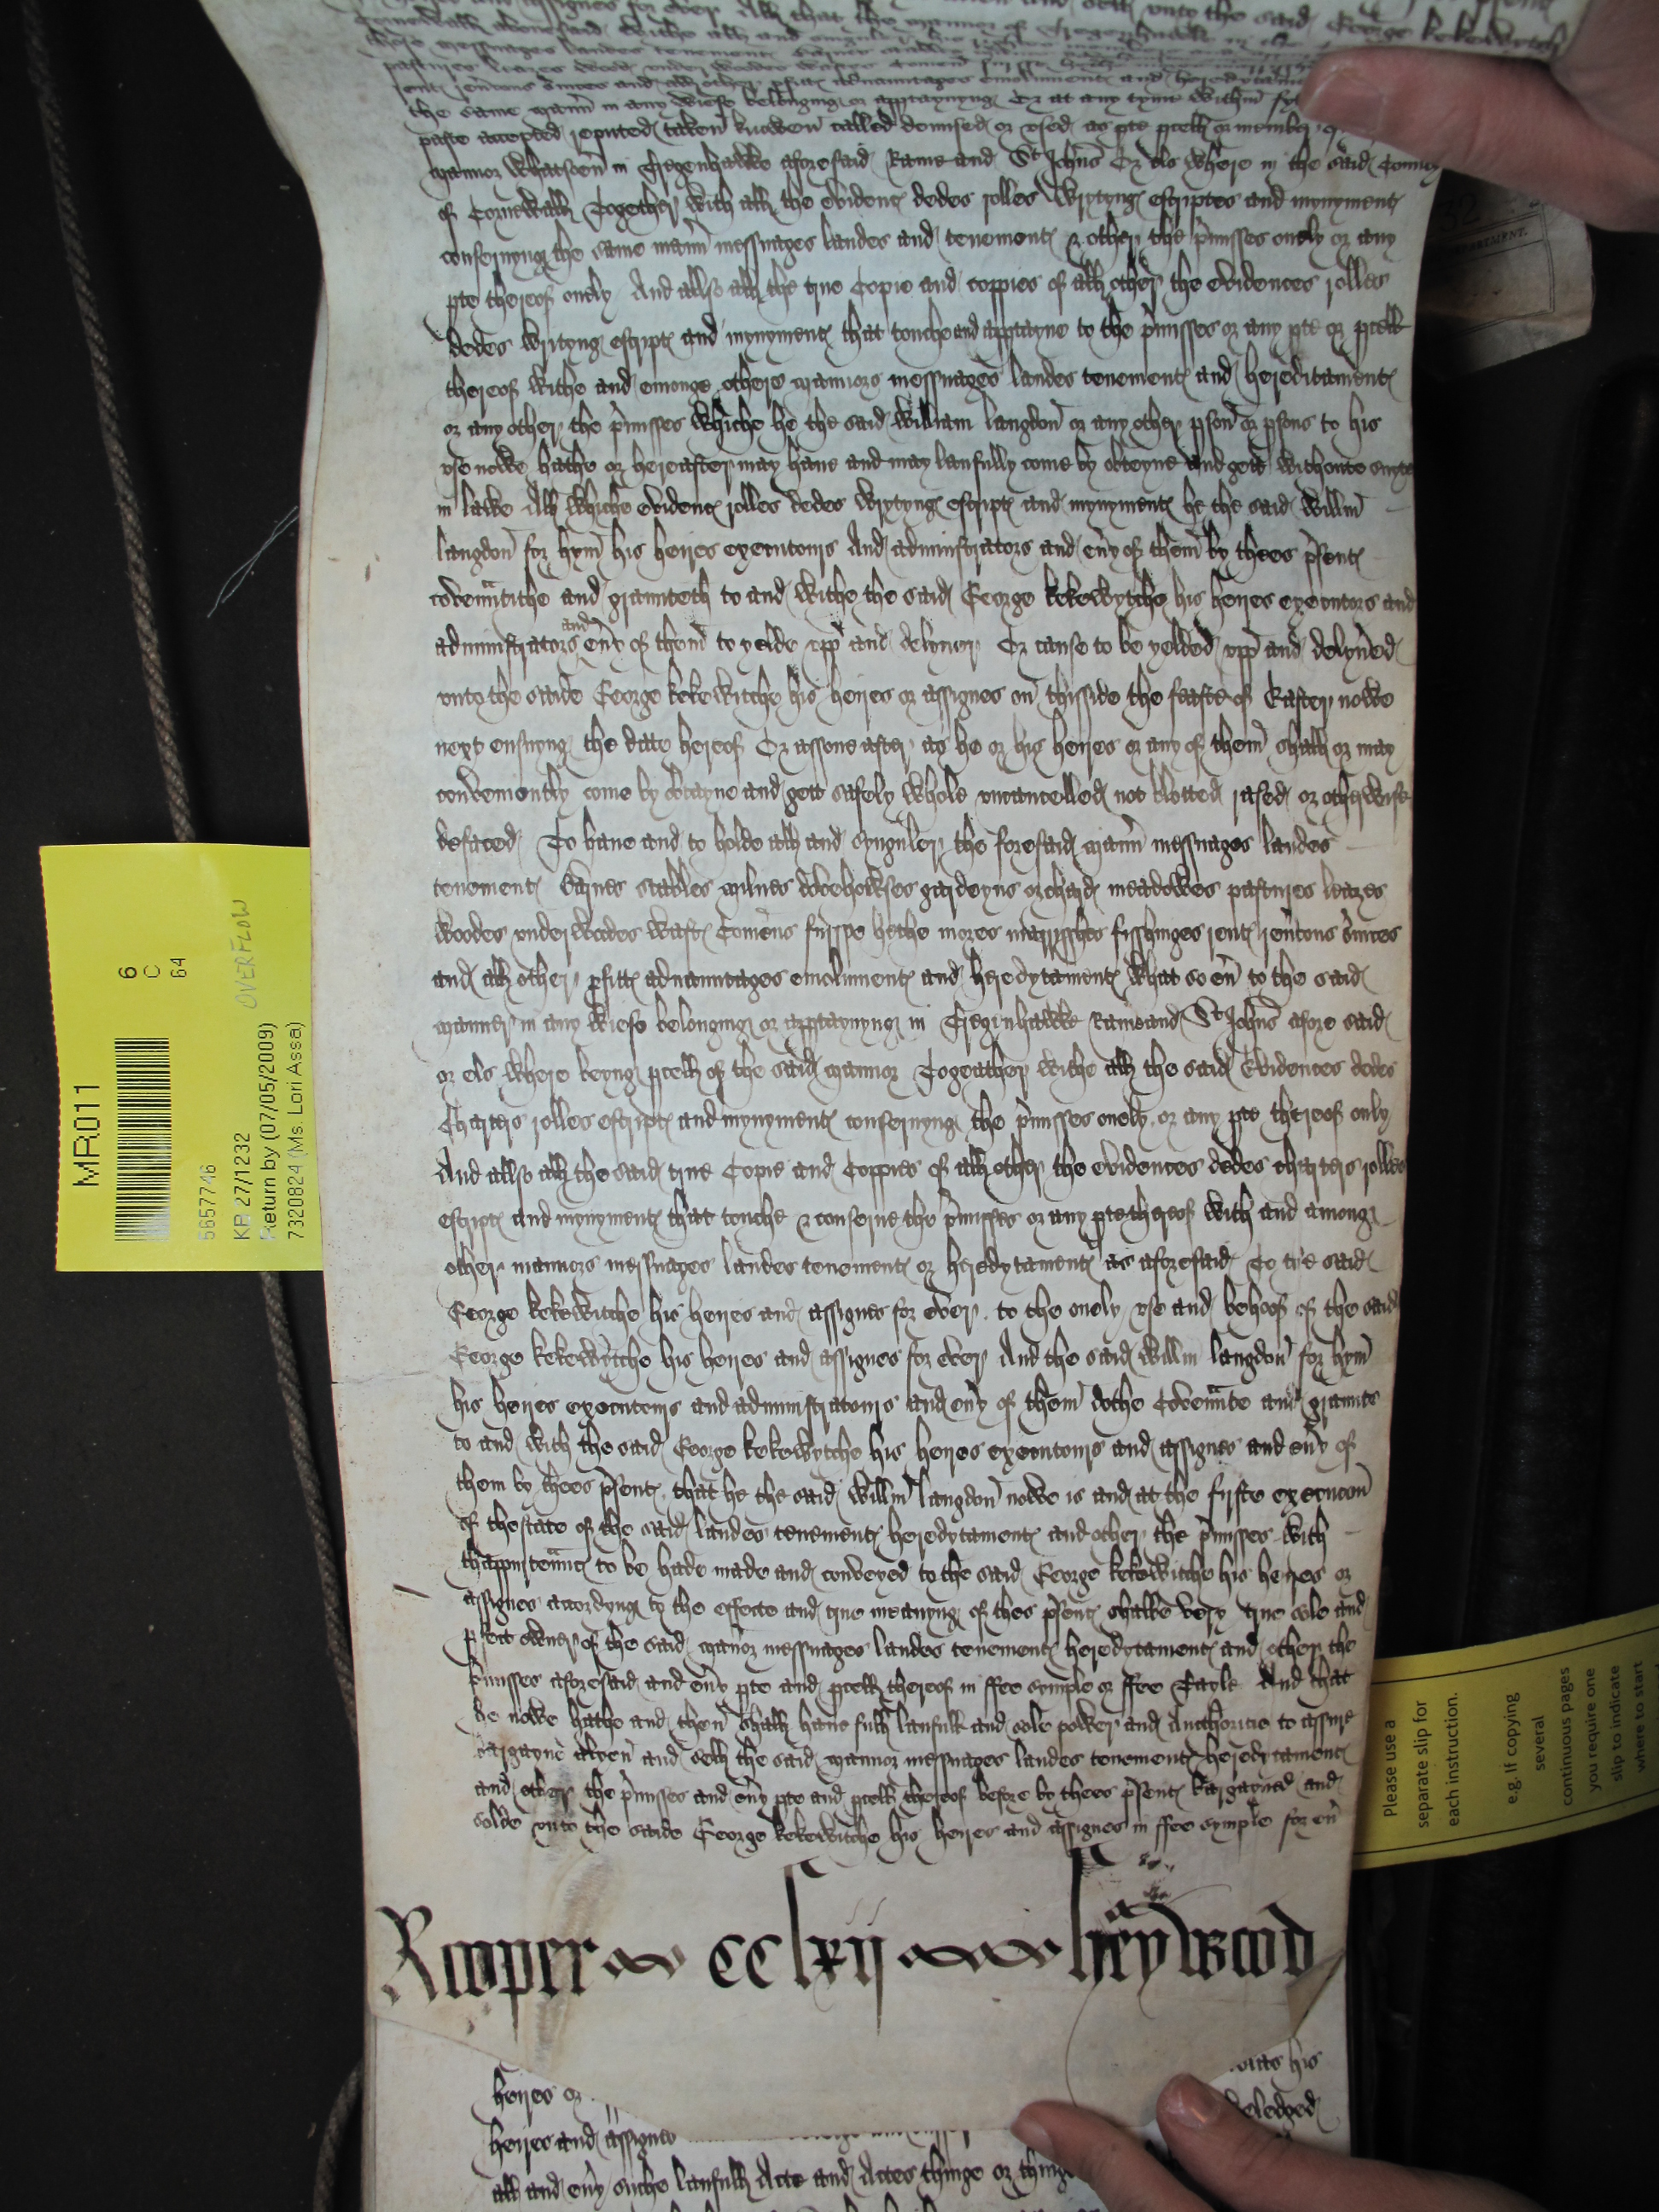 and assignes for ever All that the mannor of unto the said George kekewytch
Cornewall aforesaid withe all and
those messuages landes tenement
pastures leazes woodes under woodes wastes
rent revcons svices and all other pfitt advauntages emolument and heredytament
the same mann in any wiese belonging or apptaynyng Or at any tyme within
paste accepted reputed taken knowen called demised or used as pte pcell or member of
mannor whatsoev in Tregenhawke aforesaid Rame and St Johns Or els where in the said County
of Cornewall Together with all the evident dedes rolles wrytyng escriptes and mynyment
consernyng the same mann messuages landes and tenement & other the pmisses onely or any
pte thereof onely And allso all the true Copie and coppies of all other the evidences rolles
dedes writyng escript and mynyment that touche and apptayne to the pmisses or any pte or pcell
thereof withe and emonge others mannors messuages landes tenement and hereditament
or any other the pmisses whiche he the said william langdon or any other pson or psons to his
use nowe hathe or hereafter may have and may laufully come by obteyne and gett withoute suyte
in lawe All whiche evident rolles dedes wrytyng escript and mynyment he the said willm
langdon for hym his heires executours And administrators and evy of them by thees psent
covenntithe and graunteth to and withe the said George kekewytche his heires executors and
administrators and evy of them to yelde upp and delyver Or cause to be yelded upp and delyved
unto the saide George kekewitche his heires or assignes on thisside the feaste of Easter nowe
next ensuyng the date hereof Or assone after as he or his heires or any of them shall or may
conveniently come by obtayne and gett safely whole uncancelled not blotted rased or otherwise
defaced To have and to holde all and synguler the foresaid mann messuages landes
tenement barnes stables milnes dovehowses gardeyns orchard meadowes pastures leazes
woodes underwoodes wast Comens furspe hethe mores marysshes fisshinges rent revcons svices
and all other pfitt advauntages emolument and heredytament what so ev to the said
manner in any wiese belonging or apptaynyng in Tregenhawke Rame and St Johns afore said
or els where beyng pcell of the said mannor Togeather withe all the said Evidences dedes
Charters rolles escript and mynyment consernyng the pmisses onely or any pte thereof only
And allso all the said true Copie and Coppies of all other the evidences dedes charters rolles
escript and mynyment that touche & conserne the pmisses or any pte thereof with and among
other mannors messuages landes tenement or heredytament as aforesaid To the said
George kekewitche his heires and assignes for ever to the onely use and behoof of the said
George kekewytche his heires and assignes for ever And the said willm langdon for hym
his heires executours and administratours and evy of them dothe Covennte and graunte
to and with the said George kekewytche his heires executours and assignes and evy of
them by thees psent that he the said willm langdon nowe is and at the firste execucon
of thestate of the said landes tenement heredytament and other the pmisses with
thappurtennc to be hade made and conveyed to the said George kekewitche his heires or
assignes accordyng to the effecte and true meanyng of thes psent shalbe very true sole and
pfect owner of the said manor messuages landes tenement heredytament and other the
pmisses aforesaid and evy pte and pcell thereof in ffee symple or ffee Tayle And that
he nowe hathe and then shall have full laufull and sole power and Authoritie to assure
bargayne alyen and sell the said mannor messuages landes tenement heredytament
and other the pmisses and evy pte and pcell thereof before by thees psent bargayned and
solde unto the saide George kekewitche his heires and assignes in ffee symple for ev
Rooper cclxij heywood
heires or his
heires and assignes
all and evy suche laufull Acte and Actes thinge or
MR011
6
C
64
5657746
KB 27/1232
OVERFLOW
Return by (07/05/2009)
7320824 (Ms. Lori Assa)
Please use a
separate slip for
each instruction.
e.g. If copying
several
continuous pages
you require one
slip to indicate
where to start